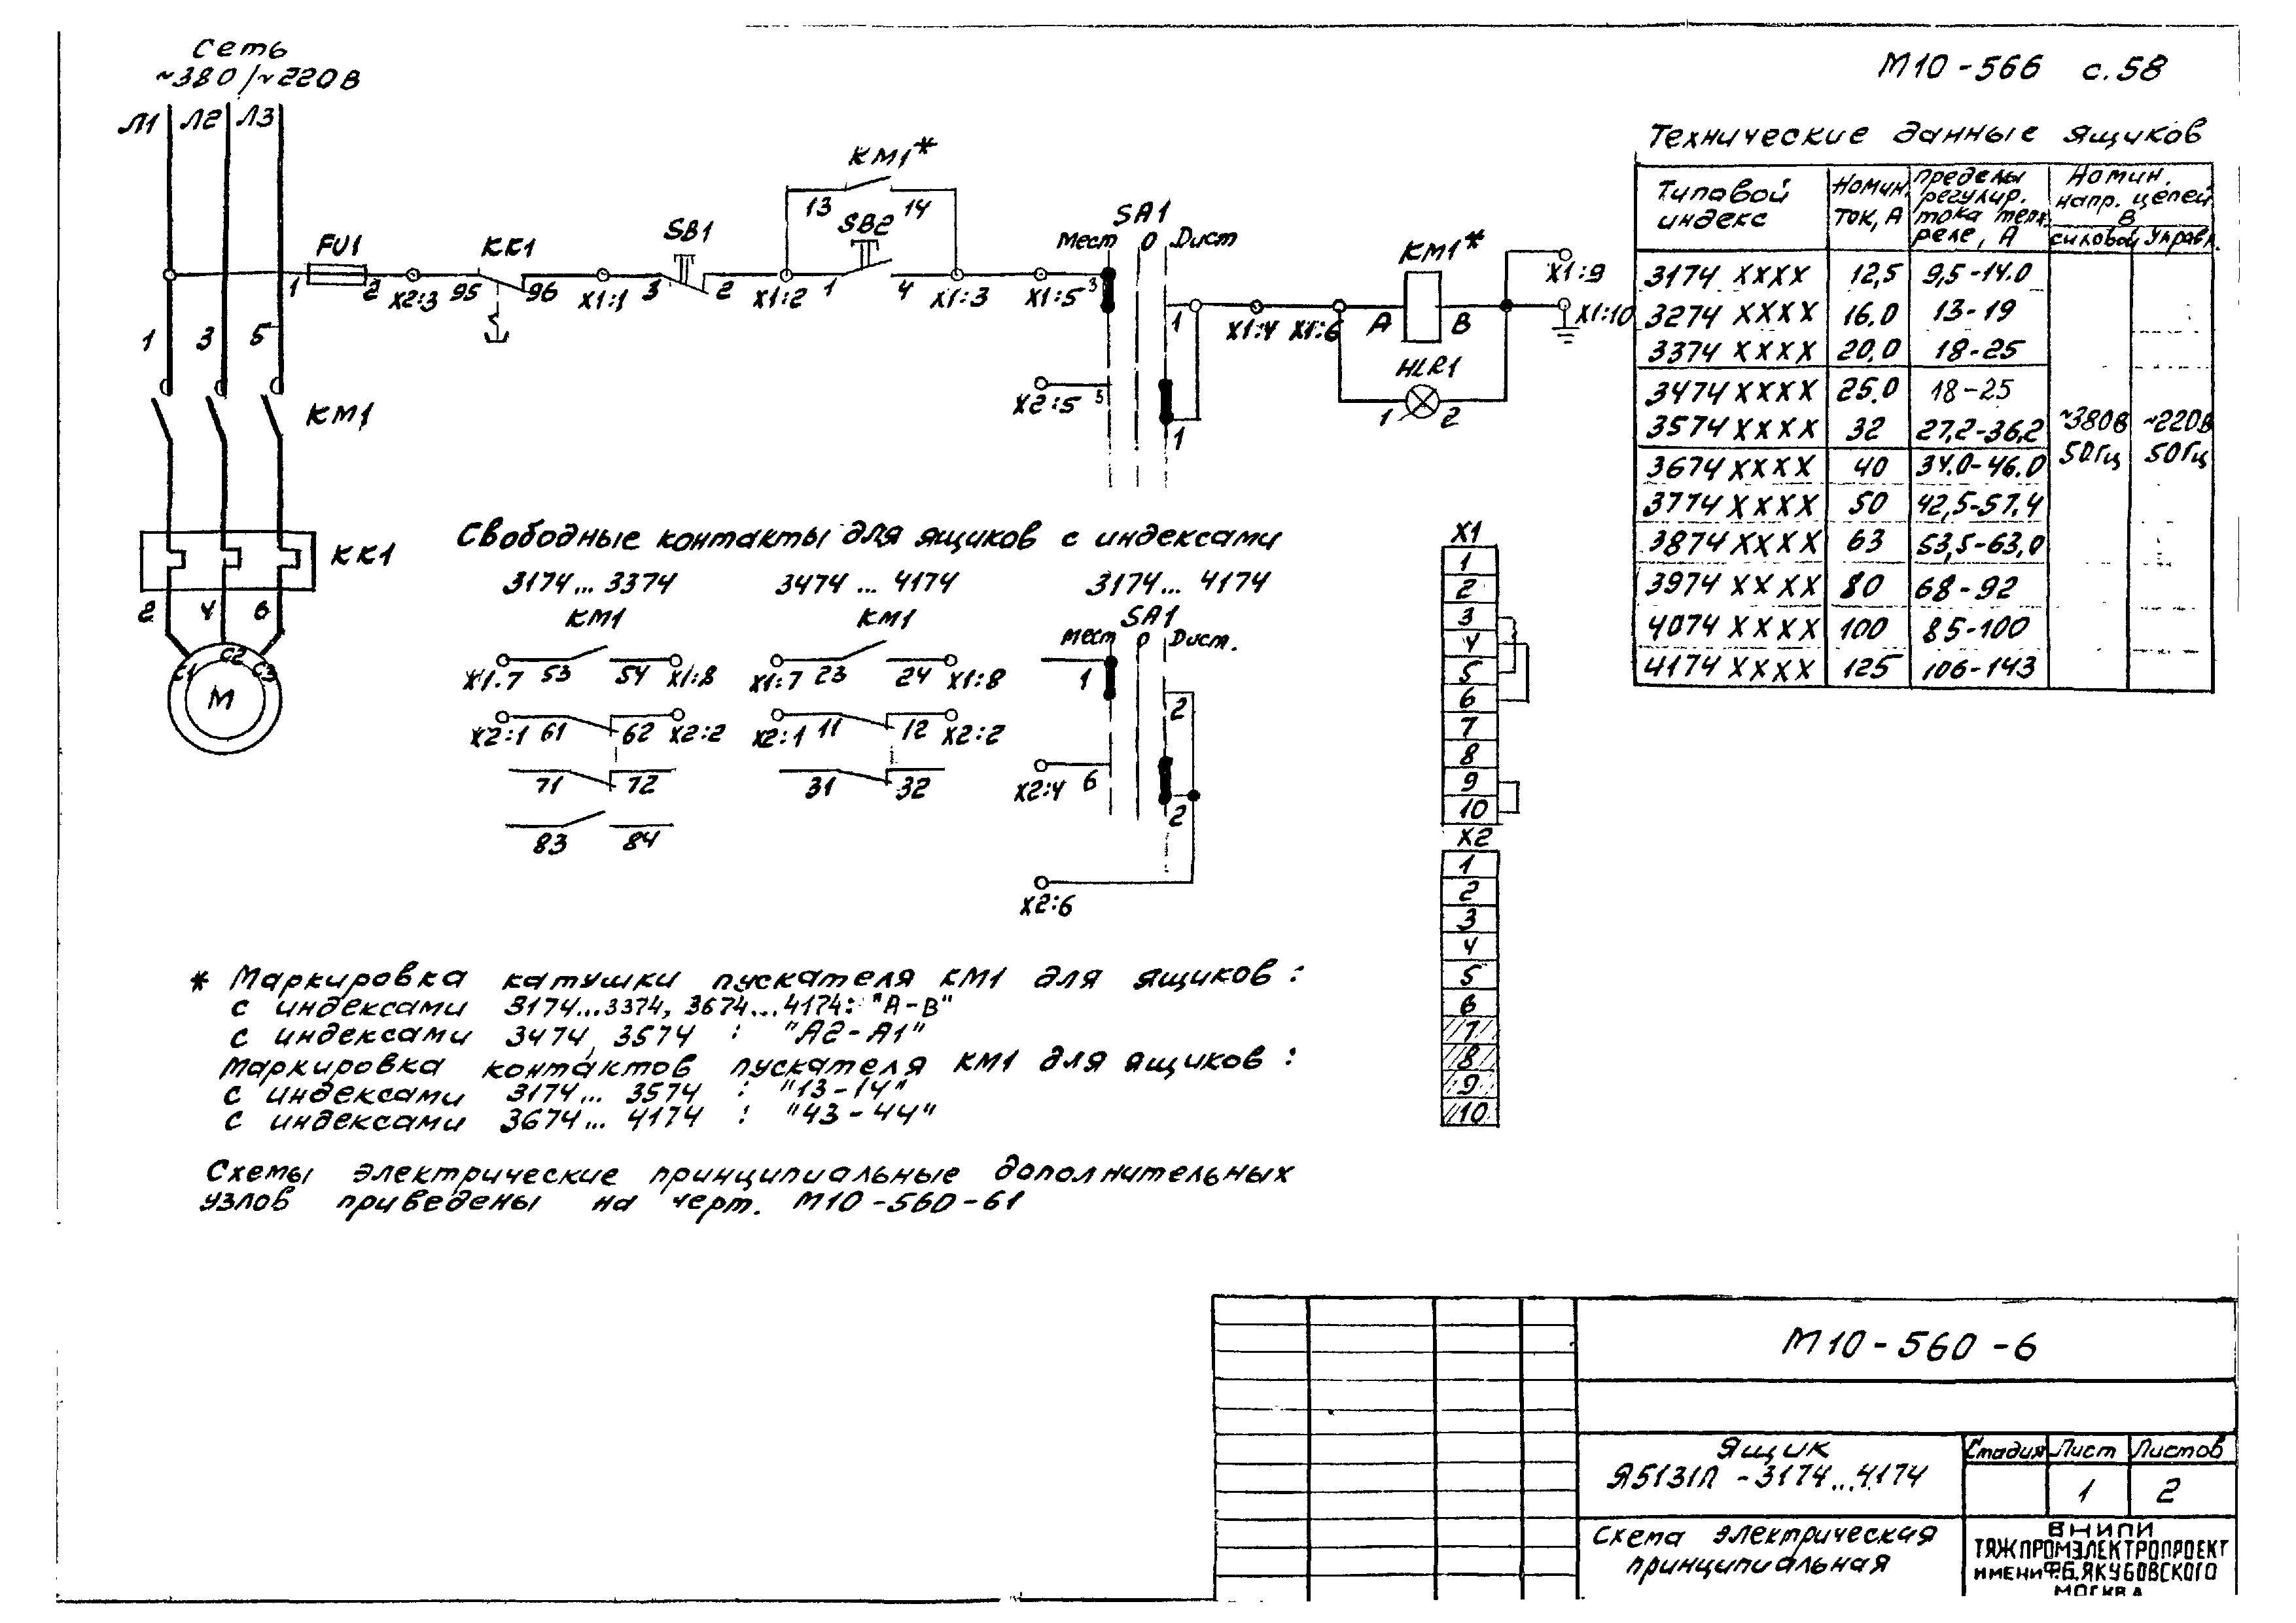 Сеть
~380/~220В
Л1 Л2 Л3
М10-566 с.58
FU1
1 2
X2:3
KK1
95 96
X1:1
SB1
3 2
X1:2
KM1*
13 14
SB2
1 4
X1:3
X1:5
SA1
Мест О Дист
3
1
X2:5 5
1
X1:4 X1:6
KM1*
A B
HLR1
1 2
X1:9
X1:10
1 3 5
KM1
KK1
2 4 6
C1 C2 C3
М
Технические данные ящиков
Типовой индекс
Номин. ток, А
Пределы регулир. тока тепл. реле, А
Номин. напр. цепей В
силовой Управл.
3174 ХХХХ 12,5 9,5-14.0
3274 ХХХХ 16.0 13-19
3374 ХХХХ 20,0 18-25
3474 ХХХХ 25.0 18-25
3574 ХХХХ 32 27,2-36,2
3674 ХХХХ 40 34.0-46.0
3774 ХХХХ 50 42,5-57.4
3874 ХХХХ 63 53,5-63,0
3974 ХХХХ 80 68-92
4074 ХХХХ 100 85-100
4174 ХХХХ 125 106-143
~380В 50Гц
~220В 50Гц
Свободные контакты для ящиков с индексами
3174... 3374 3474 ... 4174 3174... 4174
KM1 KM1 SA1
Мест О Дист.
X1.7 53 54 X1:8 X1:7 23 24 X1:8 1
X2:1 61 62 X2:2 X2:1 11 12 X2:2 2
71 72 31 32 X2:4 6 2
83 84
X2:6
X1
1
2
3
4
5
6
7
8
9
10
X2
1
2
3
4
5
6
7
8
9
10
* Маркировка катушки пускателя КМ1 для ящиков:
с индексами 3174...3374, 3674...4174: "А-В"
с индексами 3474, 3574 : "А2-А1"
Маркировка контактов пускателя КМ1 для ящиков:
с индексами 3174... 3574 : "13-14"
с индексами 3674... 4174 : "43-44"
Схемы электрические принципиальные дополнительных
узлов приведены на черт. М10-560-61
М10-560-6
Ящик
Я5131Л -3174...4174
Стадия Лист Листов
1 2
Схема электрическая
принципиальная
ВНИПИ
ТЯЖПРОМЭЛЕКТРОПРОЕКТ
ИМЕНИ Ф.Б.ЯКУБОВСКОГО
МОСКВА